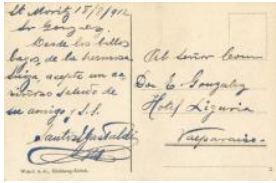 St. Moritz 15/8/912
Sr. Gonzalez.
Desde los bellos
lagos, de la hermosa
Suiza, acepte un ca
riñoso saludo de
su amigo y S.S.
Al Señor
Don E. Gonzalez
Hotel Liguria
Valparaiso.